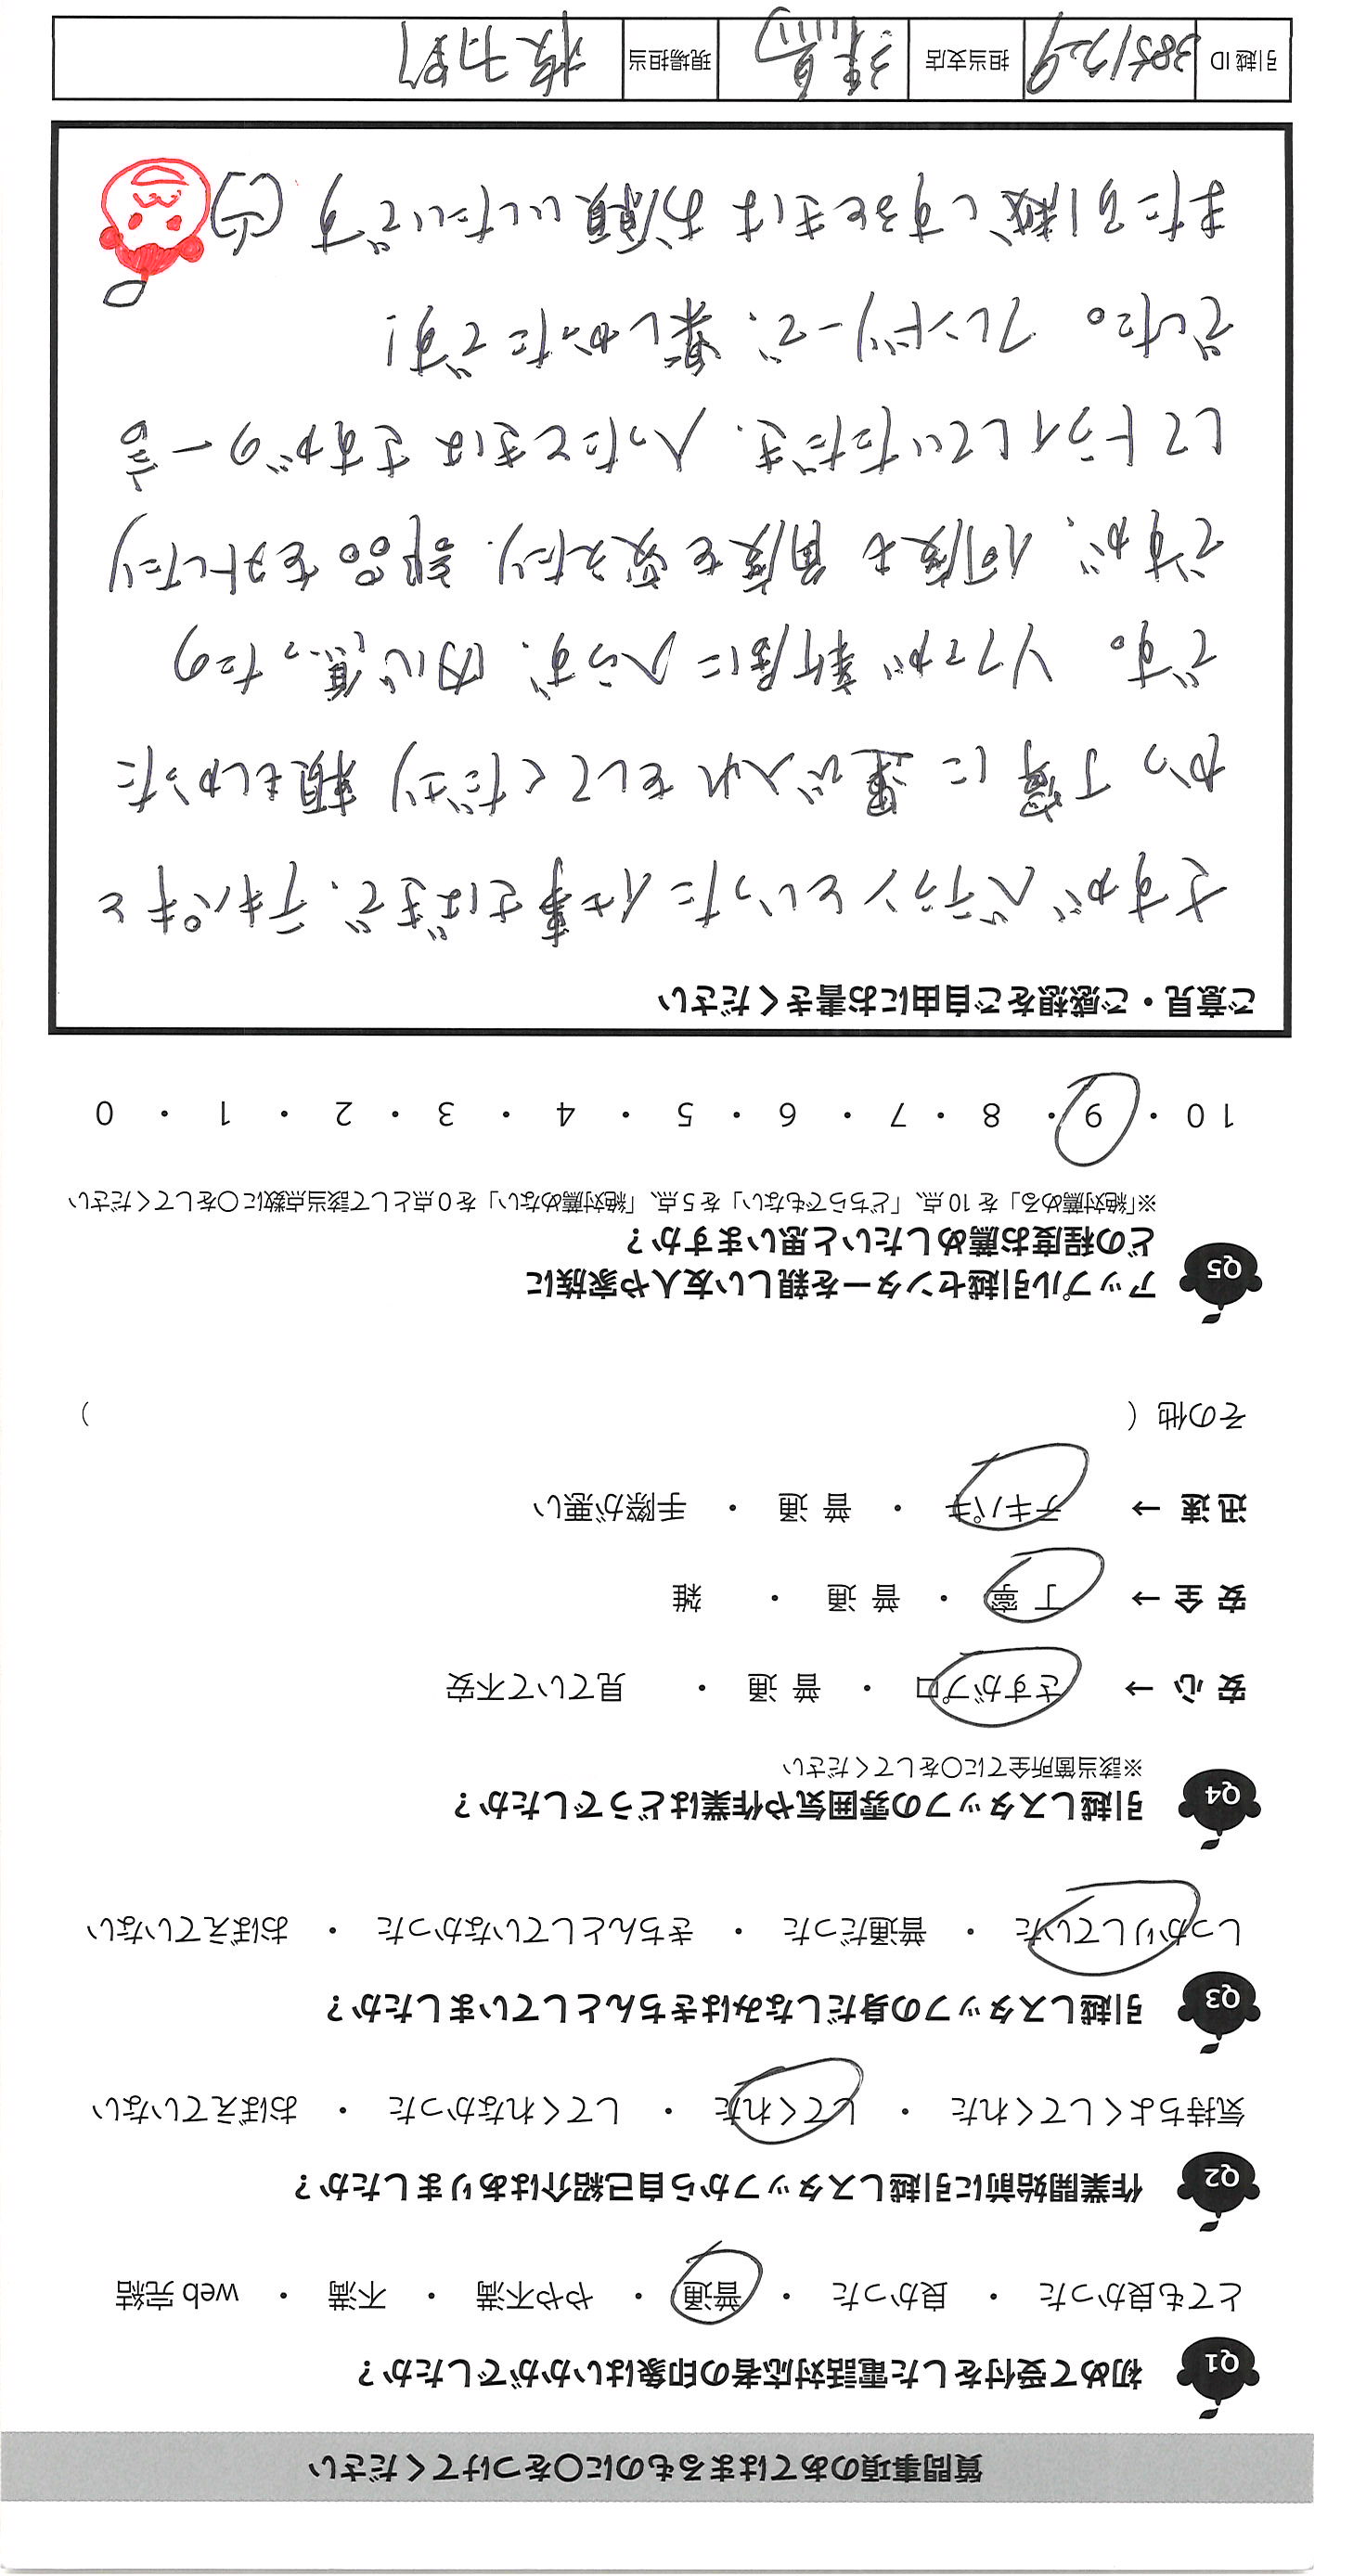 質問事項のあてはまるものに〇をつけてください
Q1 初めて受付をした電話対応者の印象はいかがでしたか？
とても良かった ・ 良かった ・ 普通 ・ やや不満 ・ 不満 ・ web 完結
Q2 作業開始前に引越しスタッフから自己紹介はありましたか？
気持ちよくしてくれた ・ してくれた ・ してくれなかった ・ おぼえていない
Q3 引越しスタッフの身だしなみはきちんとしていましたか？
しっかりしていた ・ 普通だった ・ きちんとしていなかった ・ おぼえていない
Q4 引越しスタッフの雰囲気や作業はどうでしたか？
※該当箇所全てに〇をしてください
安 心 → さすがプロ ・ 普 通 ・ 見ていて不安
安 全 → 丁 寧 ・ 普 通 ・ 雑
迅 速 → テキパキ ・ 普 通 ・ 手際が悪い
その他（ ）
Q5 アップル引越センターを親しい友人や家族に
どの程度お薦めしたいと思いますか？
※「絶対薦める」を 10 点、「どちらでもない」を 5 点、「絶対薦めない」を 0 点として該当点数に〇をしてください
10 ・ 9 ・ 8 ・ 7 ・ 6 ・ 5 ・ 4 ・ 3 ・ 2 ・ 1 ・ 0
ご意見・ご感想をご自由にお書きください
さすがベテランといった仕事さばきで、テキパキと
かつ丁寧に運び入れをしてくださり 頼もしかった
です。 ソファが新居に入らず、内心焦ったの
ですが、何度も角度を変えたり、部品を外したり
してトライしていただき、入ったときはさすがの一言
でした。 フレンドリーで、楽しかったです!
また引越しするときはお願いしたいです
引越 ID 3851729 担当支店 練馬 現場担当